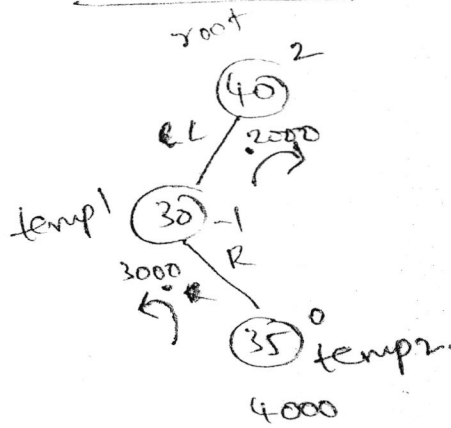 root
2
40
L
2000
temp1
30
-1
R
3000
0
35
temp2.
4000